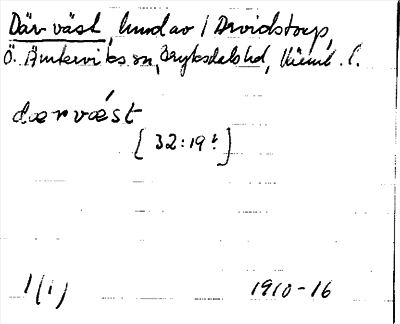 Där väst, hmd av / Arvidstorp,
Ö. Ämterviks sn, Fryksdals hd, Värml. l.
dærvǽst
[32:19 b]
1(1) 1910-16